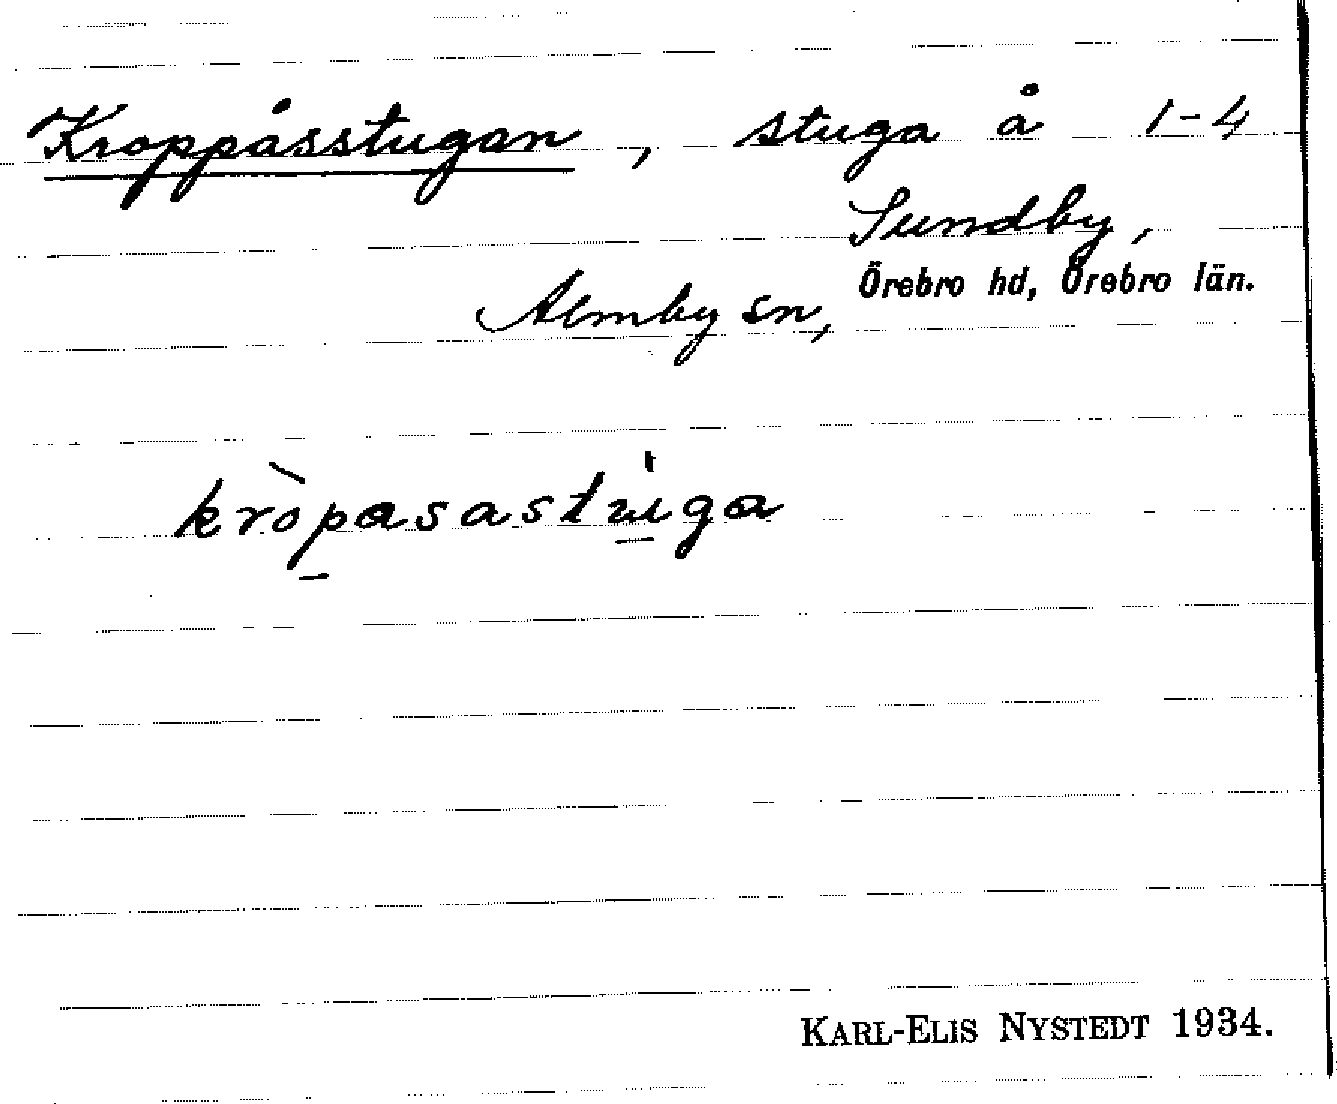 Kroppåsstugan, stuga å 1-4
Sundby,
Almby sn, Örebro hd, Örebro län.
kròpasastuga
KARL-ELIS NYSTEDT 1934.